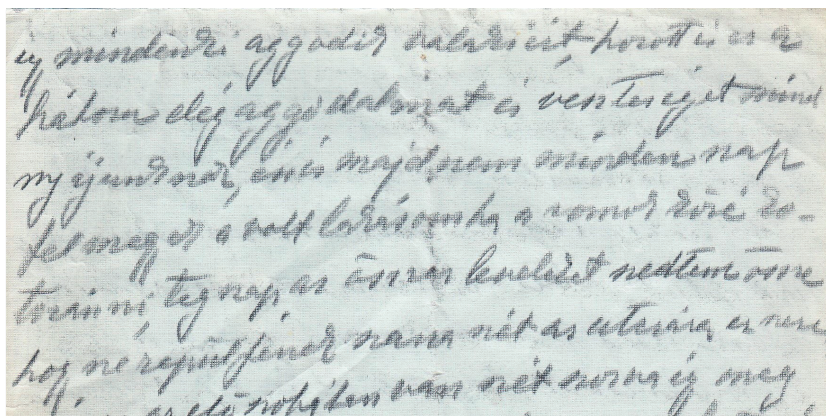 így mindenki aggódik valakiért hozott is ez a
háború elég aggodalmat és veszteséget mind
nyájunknak, én is majdnem minden nap
felmegyek a volt lakásomba a romok közé ko-
torászni tegnap az összes leveleket szedtem össze
hogy ne repüljenek szana szét az utcára, ez
az előszobában van szét szorva így meg